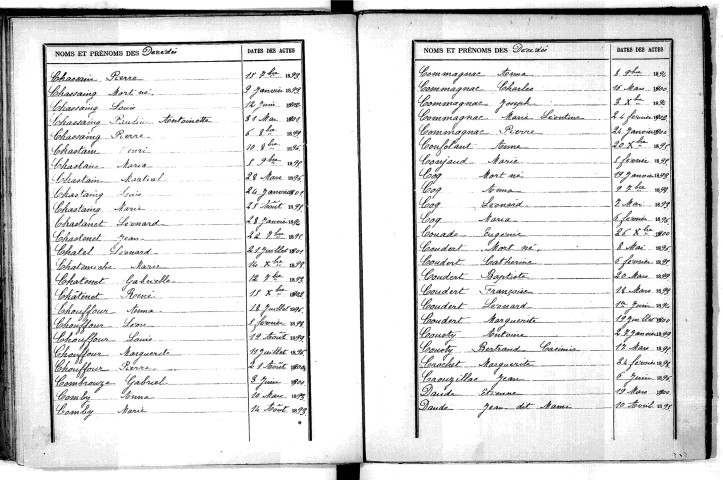 NOMS ET PRÉNOMS DES Décédés DATES DES ACTES
Chassain Pierre 18 7bre 1899
Chassaing Mort né 9 Janvier 1899
Chassaing Louis 12 Juin 1902
Chassaing Antoinette 31 Mai 1901
Chassaing Pierre 6 8bre 1899
Chastain Henri 10 8bre 1896
Chastaing Maria 8 9bre 1895
Chastain Martial 28 Mars 1896
Chastaing Louis 24 Janvier 1901
Chastaing Marie 25 Août 1895
Chastanet Léonard 28 Janvier
Chastenet Jean 22 9bre 1895
Chatel Léonard 21 Juillet 1901
Marie 14 Xbre 1898
Chatenet Gabrielle 12 9bre 1899
Châtenet René 18 Xbre 1902
Chouffour Anna 18 Juillet 1895
Chouffour Léon 1 février 1898
Chouffour Louis 19 Août 1899
Chouffour Marguerite 11 Juillet 1895
Chouffour Pierre 21 Août
Combrouze Gabriel 3 Juin 1901
Comby Anna 10 Mars 1893
Comby Marie 14 Août 1893
NOMS ET PRÉNOMS DES Décédés DATES DES ACTES
Commagnac Anna 8 9bre 1894
Commagnac Charles 18 Mars 1900
Commagnac Joseph 3 Xbre 1894
Commagnac Marie Léontine 24 février 1902
Commagnac Pierre 24 Janvier 1900
Confolant Anna 20 Xbre 1895
Conjaud Marie 8 février 1895
Coq Mort né 19 Janvier 1899
Coq Anna 9 7bre 1899
Coq Léonard 2 Mai 1899
Coq Maria 6 février 1895
Couade Eugénie 26 Xbre 1900
Coudert Mort né 8 Mai 1895
Coudert Catherine 6 février 1895
Coudert Baptiste 20 Mars 1899
Coudert Françoise 18 Mars 1899
Coudert Léonard 17 Juin 1894
Coudert Marguerite 19 Juillet 1900
Couoty Antoine 28 Janvier 1899
Couoty Bertrand Casimir 17 Mars 1895
Crochet Marguerite 24 février 1898
Crouzillac Jean 6 Juin 1895
Daude Etienne 19 Mars 1900
Daude Jean dit 10 Avril 1895